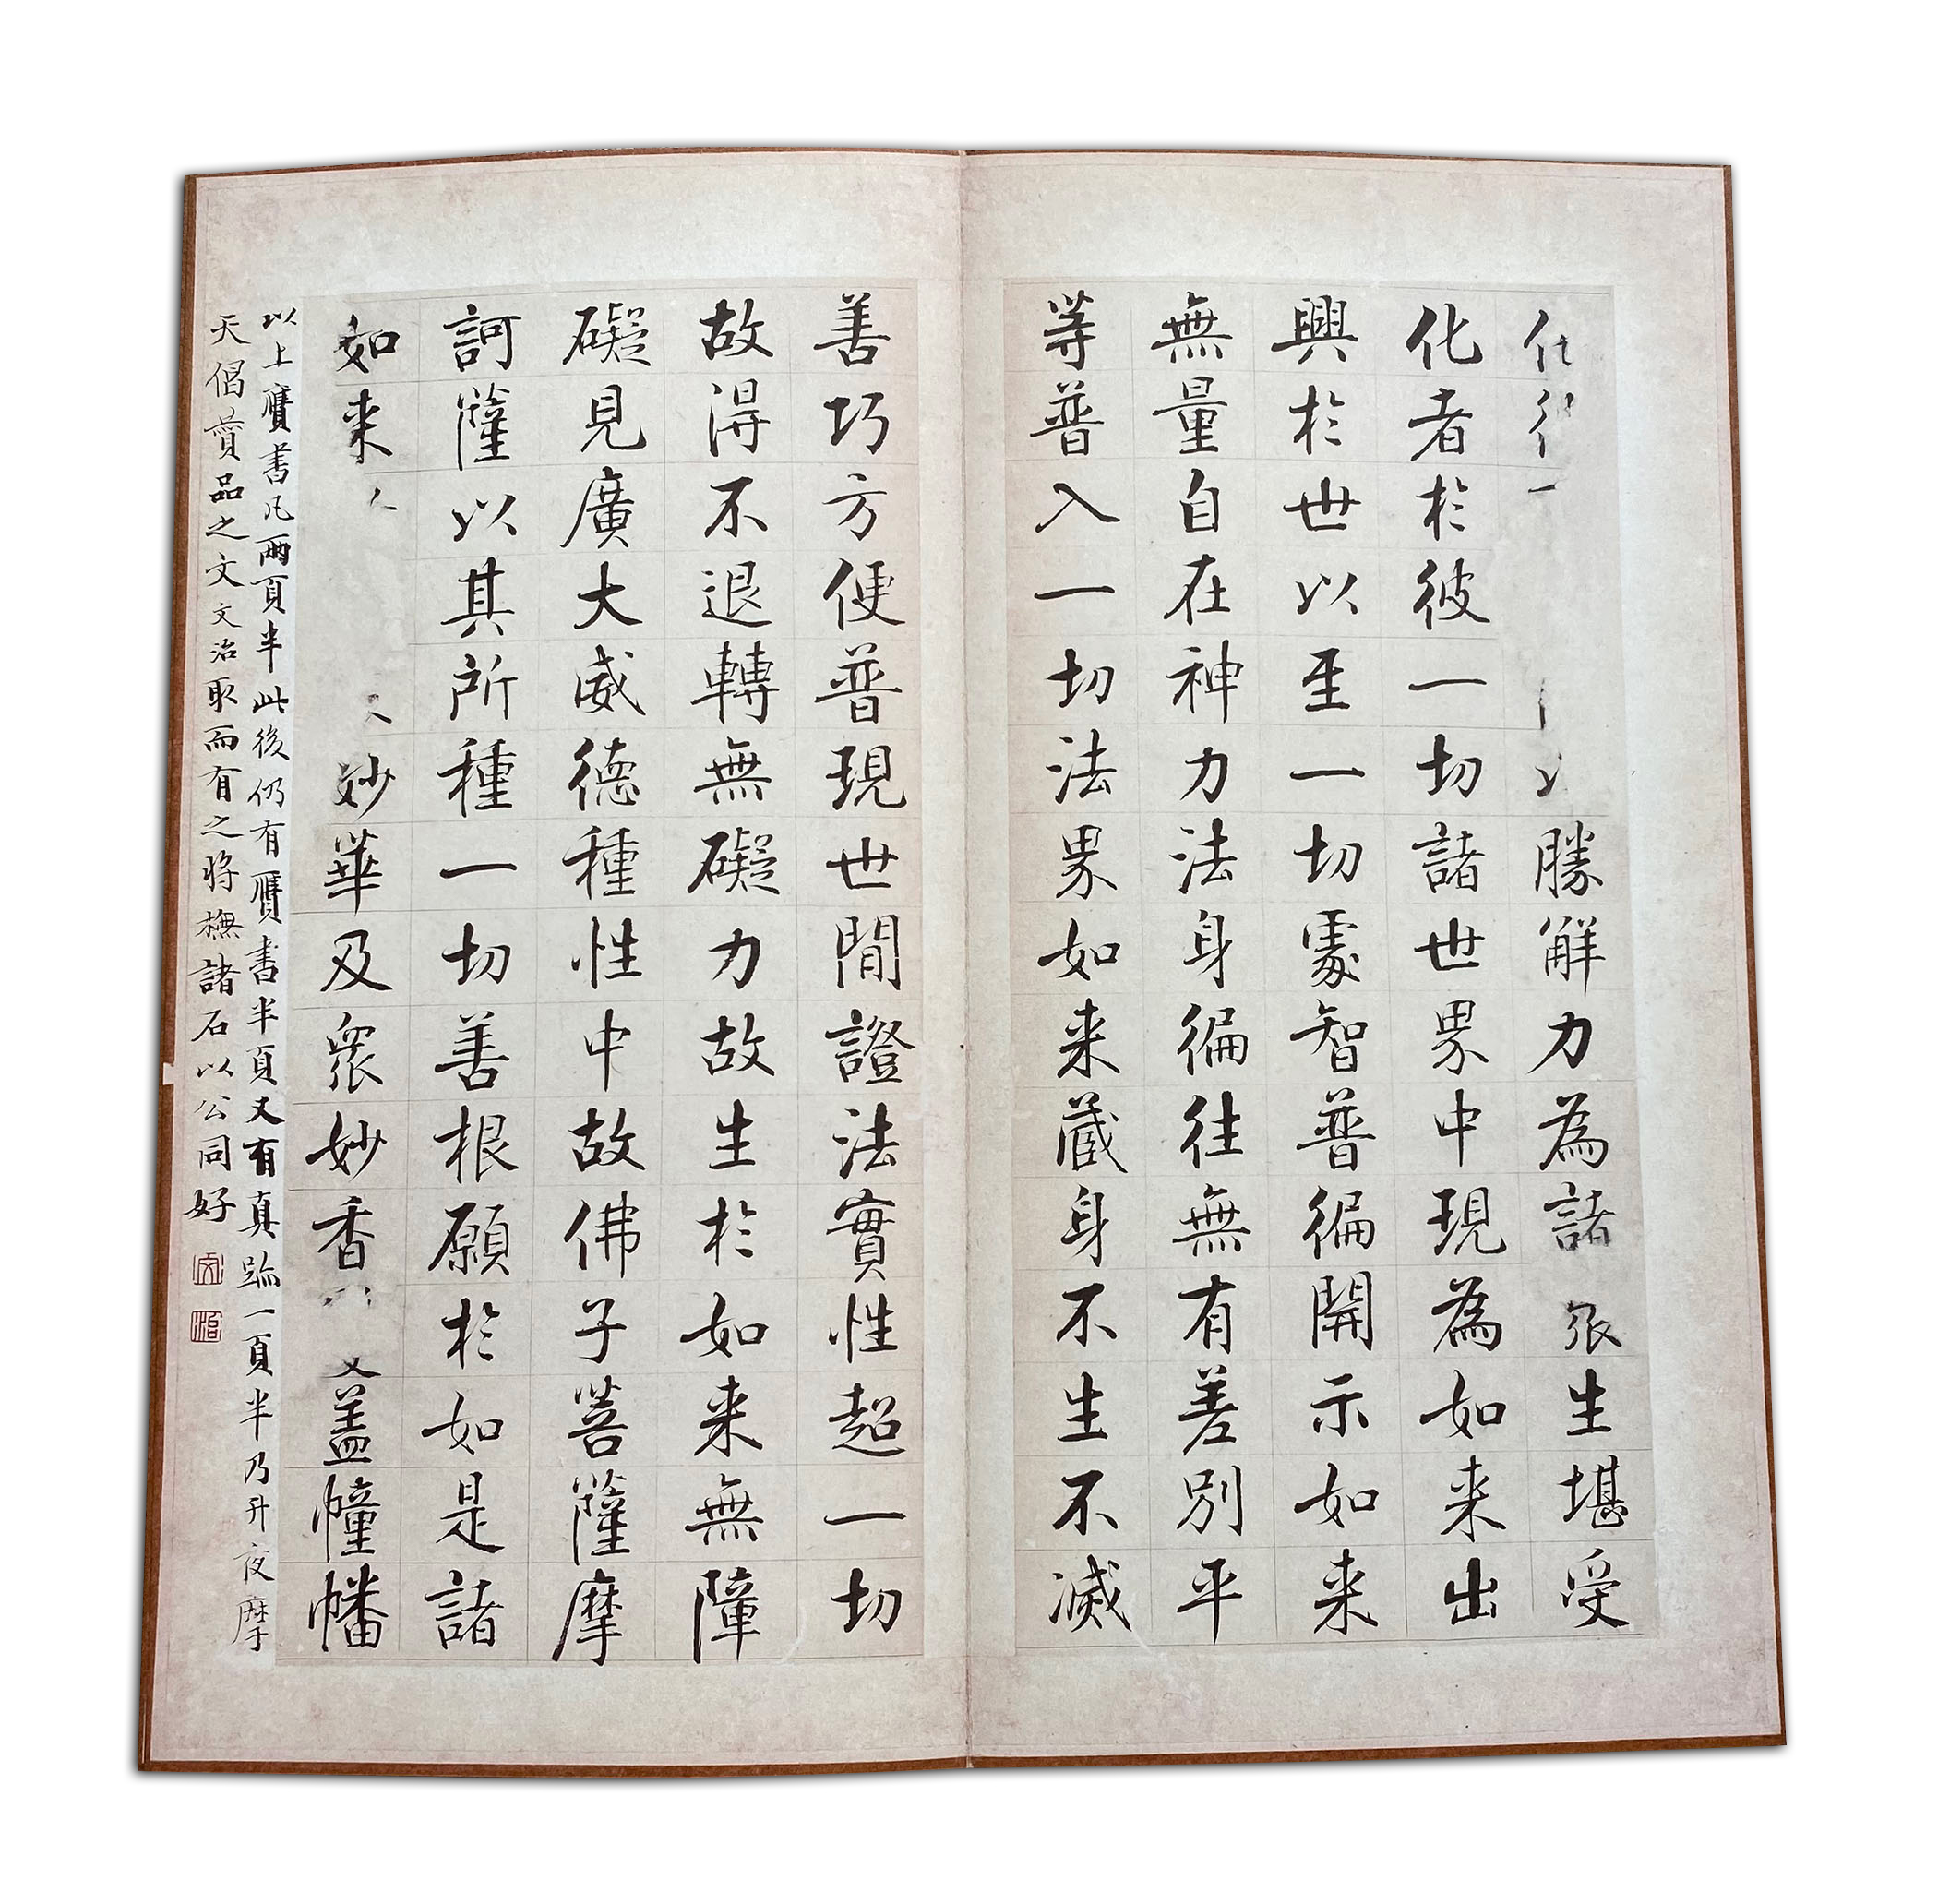 化
勝解力為諸
生堪受
化者於彼一切諸世界中現為如来出
興於世以至一切處智普徧開示如来
無量自在神力法身徧往無有差別平
等普入一切法界如来藏身不生不滅
善巧方便普現世間證法實性超一切
故得不退轉無礙力故生於如来無障
礙見廣大威德種性中故佛子菩薩摩
訶薩以其所種一切善根願於如是諸
如来
妙華及眾妙香
蓋幢幡
以上贗書凡兩頁半此後仍有贗書半頁又有真跡一頁半乃升夜摩
天偈讚品之文文治取而有之将橅諸石以公同好
文
治